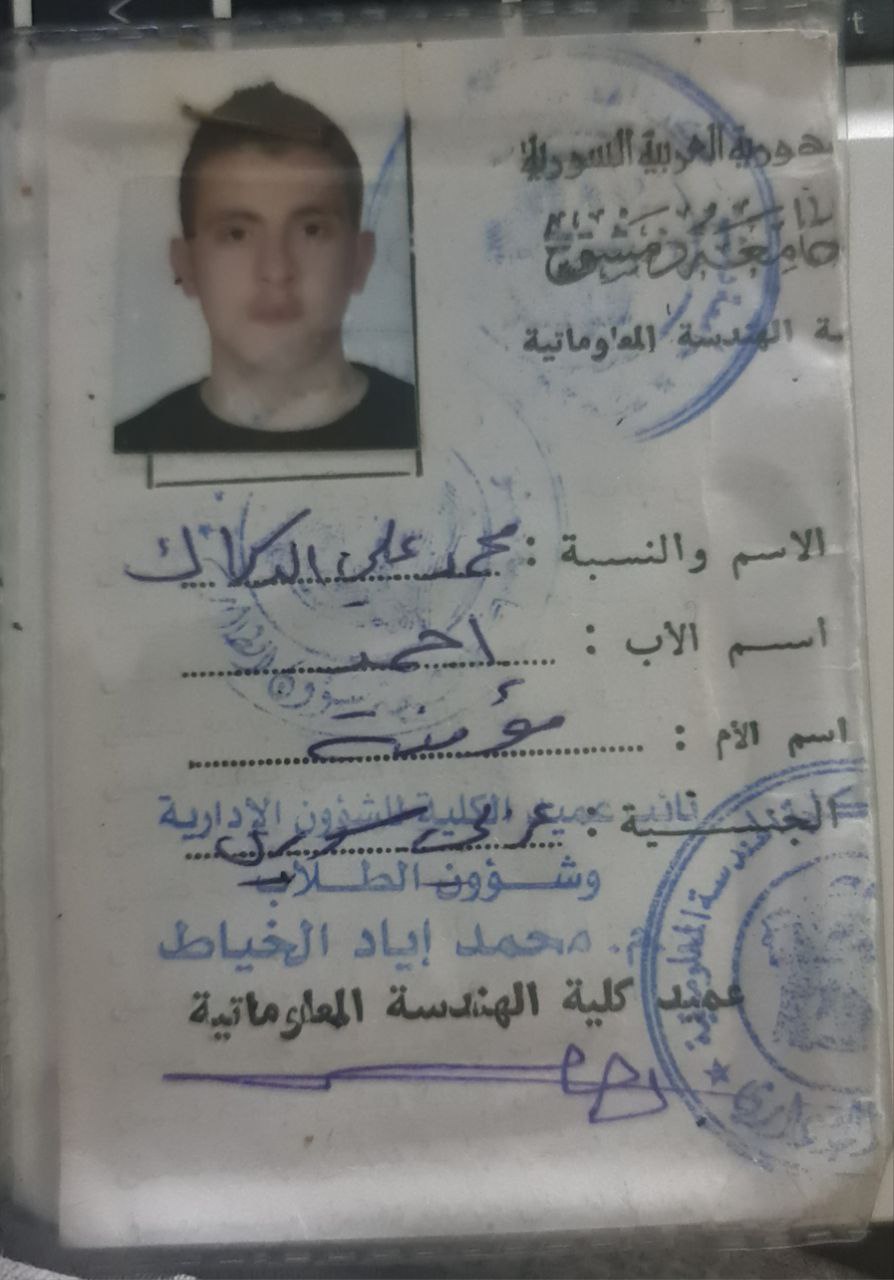 الجمهورية العربية السورية
جامعة دمشق
كلية الهندسة المعلوماتية
الاسم والنسبة : محمد علي الدكاك
اسم الأب : احمد
اسم الأم : مؤمنة
الجنسية : عربي سوري
نائب عميد الكلية للشؤون الإدارية
وشؤون الطلاب
د. محمد إياد الخياط
عميد كلية الهندسة المعلوماتية